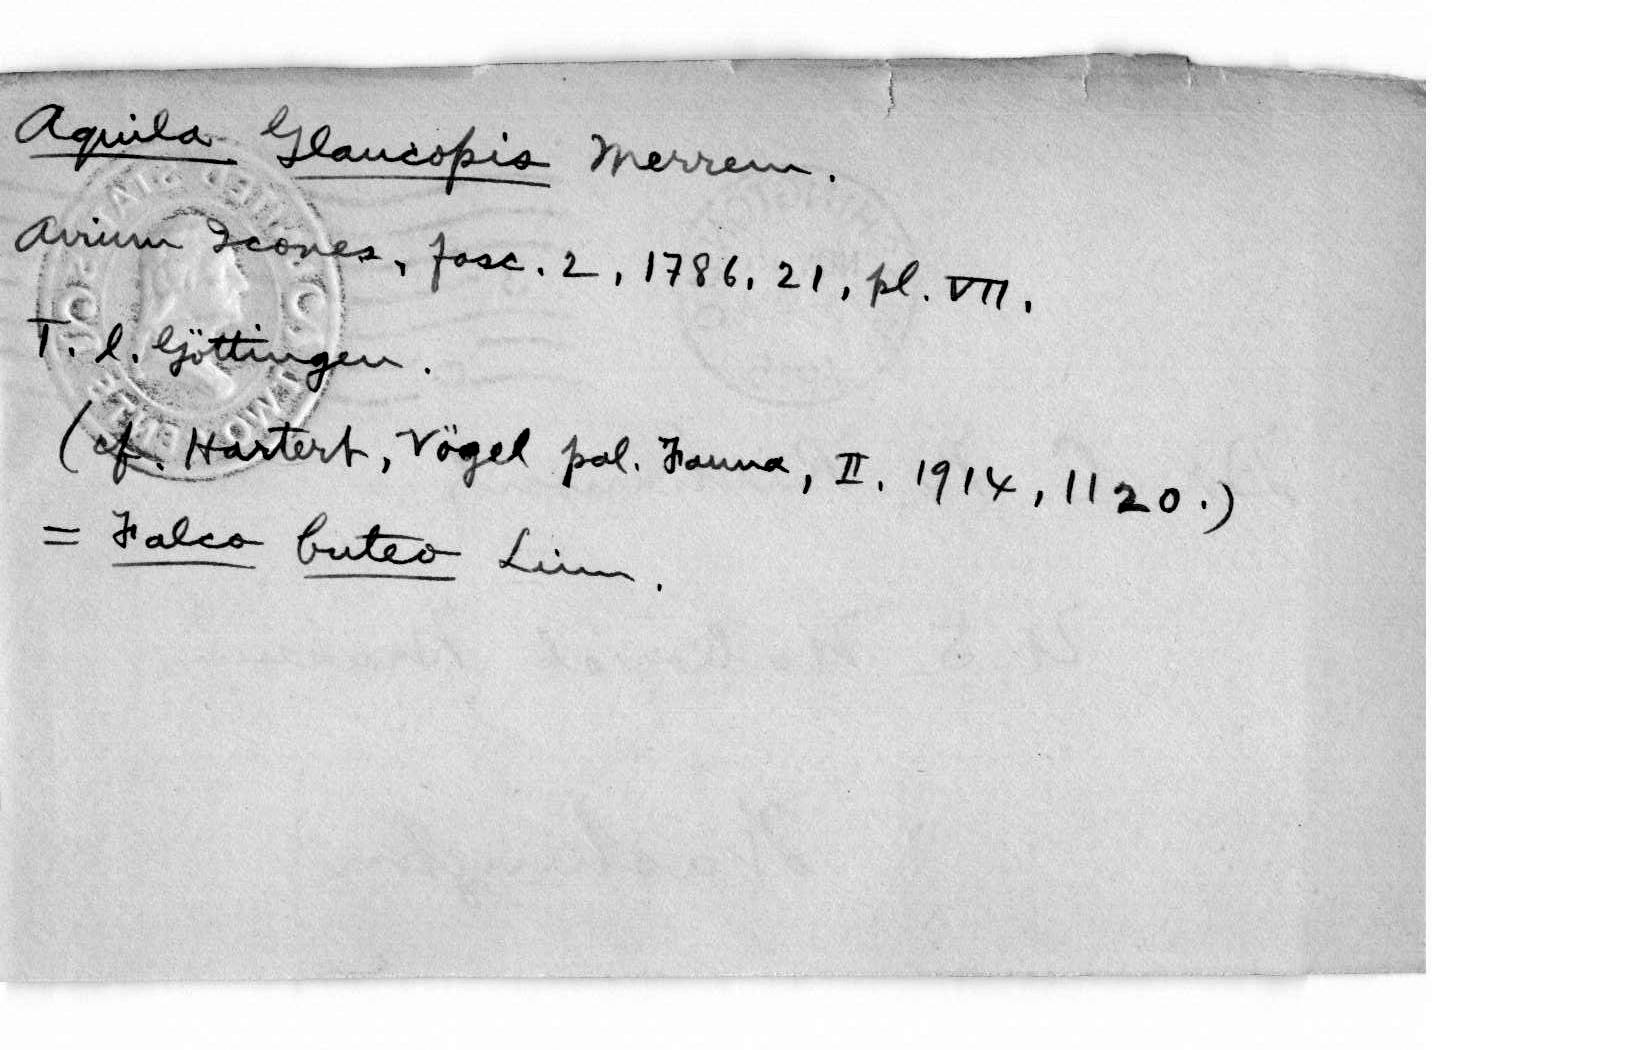 Aquila Glaucopis Merrem.
Avium Icones, fasc. 2, 1786, 21, pl. VII.
T. l. Göttingen.
(cf. Hartert, Vögel pal. Fauna, II. 1914, 1120.)
= Falco buteo Linn.